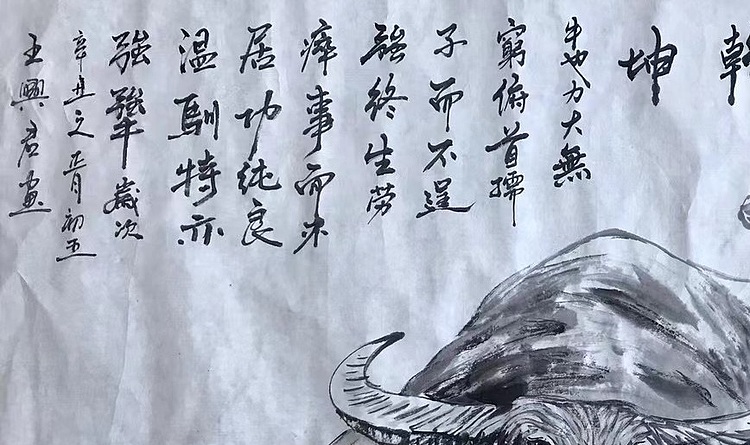 乾坤
牛也力大無
窮俯首孺
子而不逞
強終生勞
瘁事而不
居功純良
温馴特亦
強犟歲次
辛丑之正月初五
王興君畫